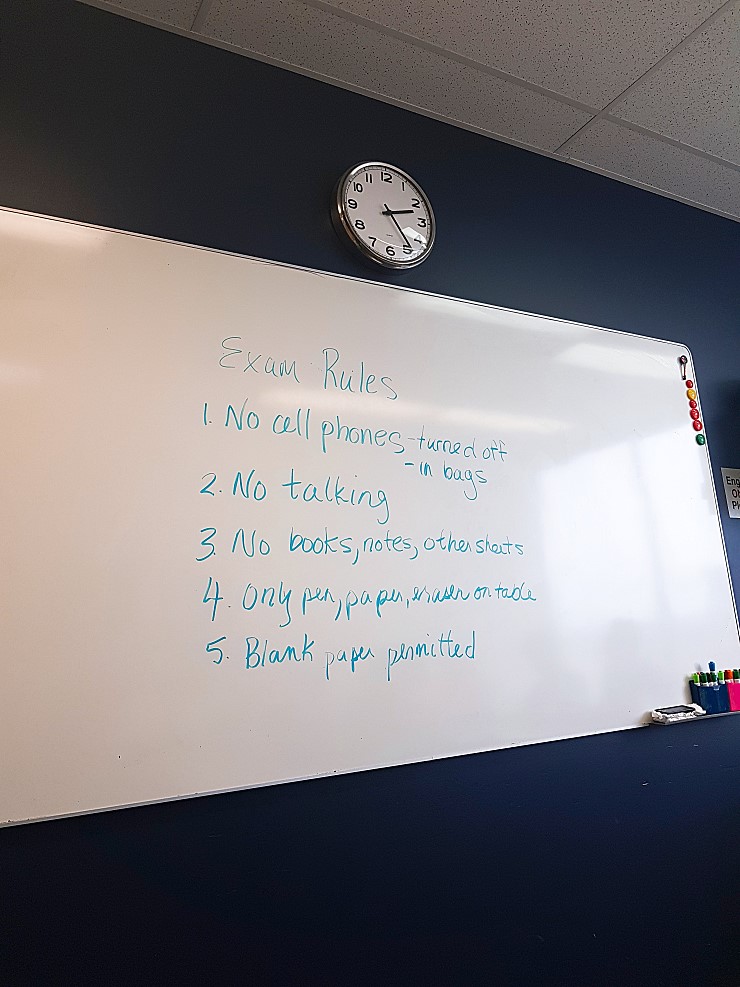 12
1
2
3
4
5
6
7
8
9
10
11
Exam Rules
1. No cell phones - turned off
- in bags
2. No talking
3. No books, notes, other sheets
4. Only pen, paper, eraser on table
5. Blank paper permitted
Eng